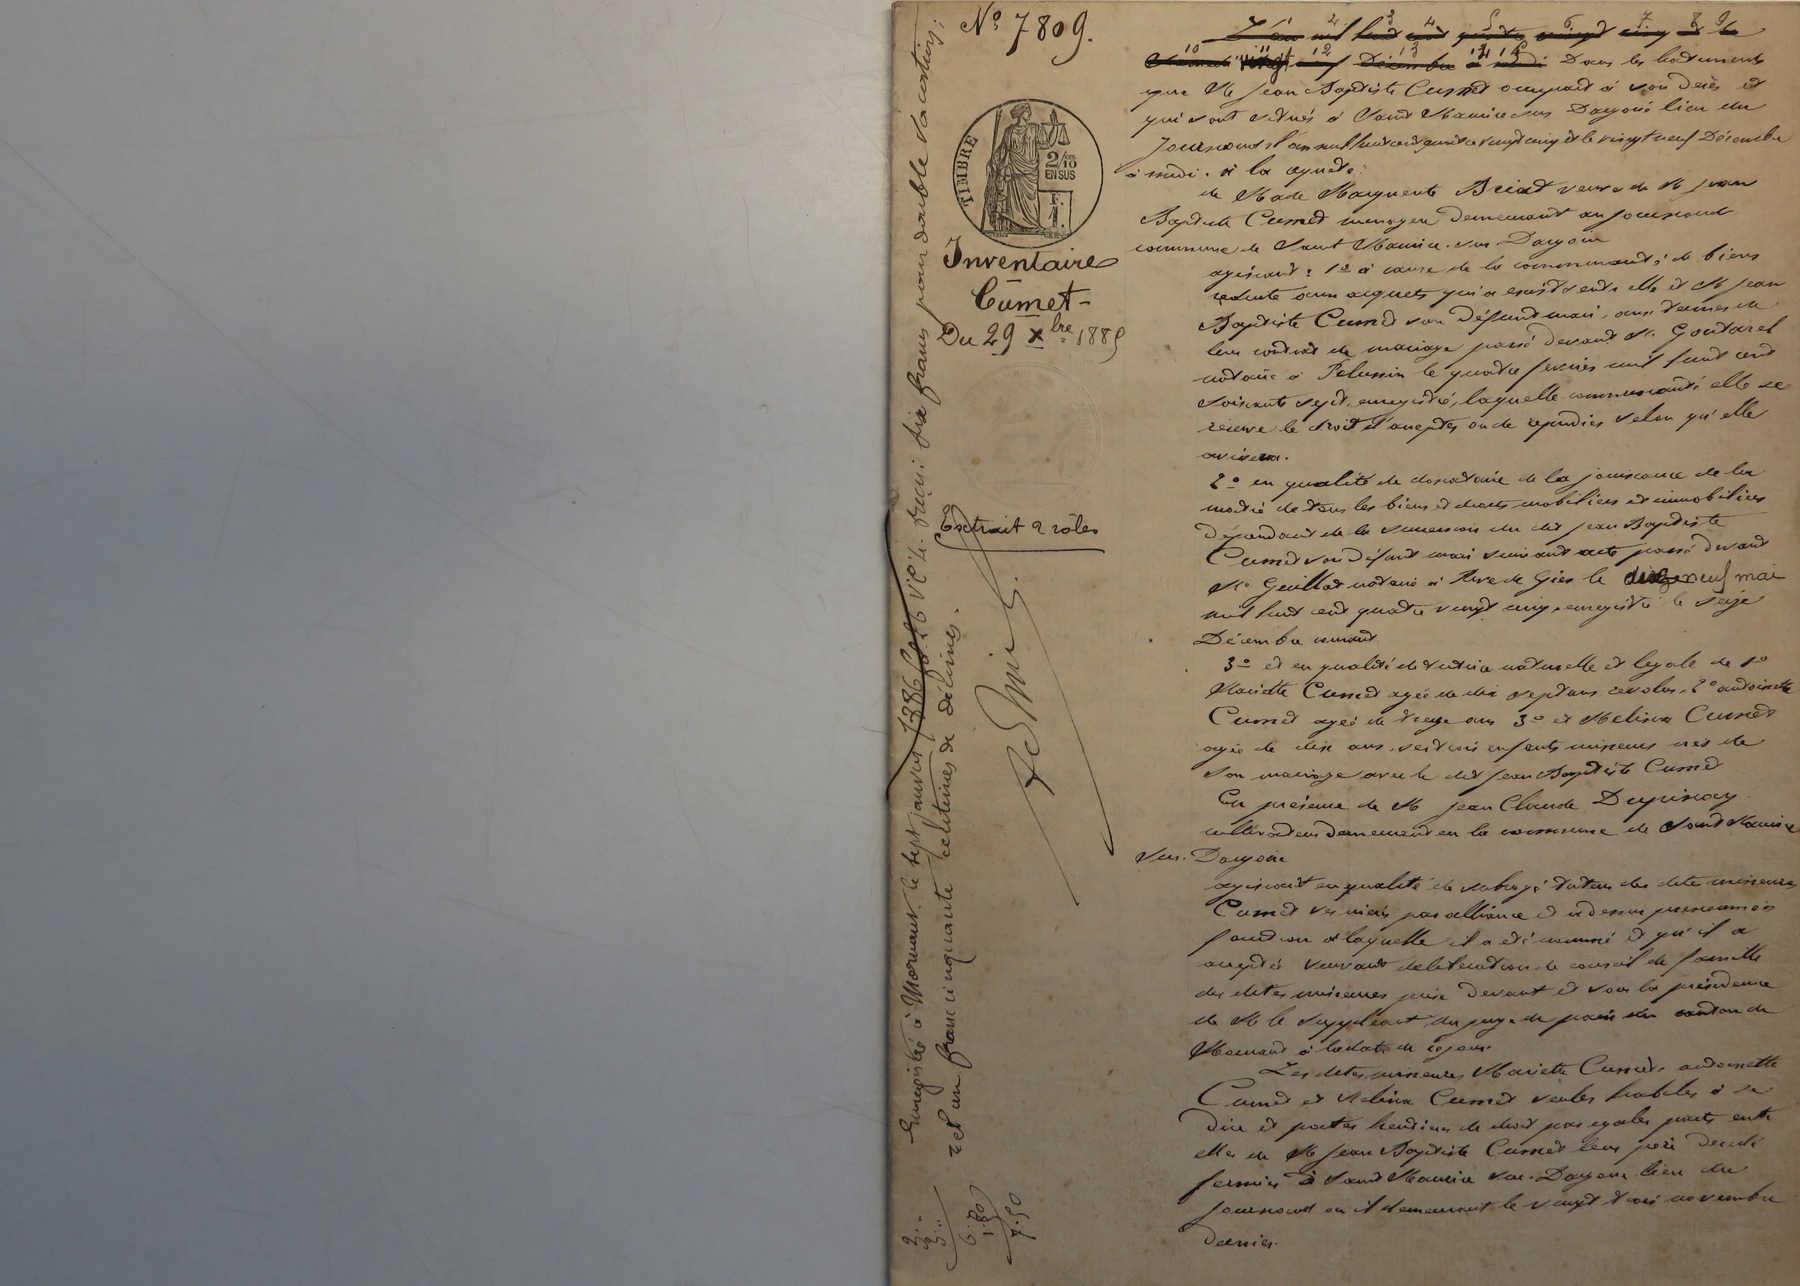 N° 7809.
TIMBRE
2/10
EN SUS
F.
1.
Inventaire
Cumet-
Du 29 Xbre 1885
Extrait 2 rôles
Enregistré à Mornant le sept janvier 1886 reçu six francs pour double vacation;
et un franc cinquante centimes de décimes.
3..
3..
6..
1.50
7.50
L'an mil huit cent quatre vingt cinq & le
vingt neuf Décembre à midi Dans les batiments
que M Jean Baptiste Cumet occupait à son décès et
qui sont situés à Saint Maurice sur Dargoire lieu du
Journoud l'an mil huit cent quatre vingt cinq et le vingt neuf Décembre
à midi. à la requête:
de Made Marguerite Briat veuve de M Jean
Baptiste Cumet menagère demeurant au Journoud
commune de Saint Maurice sur Dargoire
agissant: 1° à cause de la communauté de biens
reduite aux acquets qui a existé entre elle et M Jean
Baptiste Cumet son défunt mari, aux termes de
leur contrat de mariage passé devant Me Goutarel
notaire à Pelussin le quatre fevrier mil huit cent
soixante sept, enregistré, laquelle communauté elle se
reserve le droit d'accepter ou de repudier selon qu'elle
avisera.
2° en qualité de donataire de la jouissance de la
moitié de tous les biens et droits mobiliers et immobiliers
dépendant de la succession du dit Jean Baptiste
Cumet son défunt mari suivant acte passé devant
Me Guillot notaire à Rive de Gier le neuf mai
mil huit cent quatre vingt cinq, enregistré le seize
Décembre courant
3° et en qualité de tutrice naturelle et legale de 1°
Mariette Cumet agée de dix sept ans revolus, 2° antoinette
Cumet agée de treize ans 3° et Melina Cumet
agée de dix ans, ses trois enfants mineurs nés de
son mariage avec le dit Jean Baptiste Cumet
En présence de M Jean Claude Dupinay
cultivateur demeurant en la commune de Saint Maurice
sur Dargoire
agissant en qualité de subrogé tuteur des dites mineures
Cumet ses nièces par alliance et ci dessus prénommées
fonction à laquelle il a été nommé et qu'il a
acceptée suivant deliberation de conseil de famille
des dites mineures prise devant et sous la présidence
de M le suppléant du juge de paix du canton de
Mornant à la date de ce jour.
Les dites mineures Mariette Cumet, antoinette
Cumet et Melina Cumet seules habiles à se
dire et porter héritières de droit par egales parts entre
elles de M Jean Baptiste Cumet leur père décédé
fermier à Saint Maurice sur Dargoire lieu du
Journoud où il demeurait le vingt trois novembre
dernier.